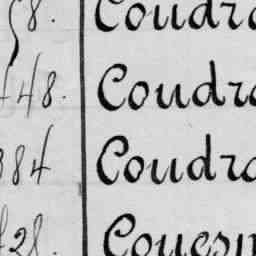 58. Coudra
448. Coudra
384 Coudra
428. Couesin